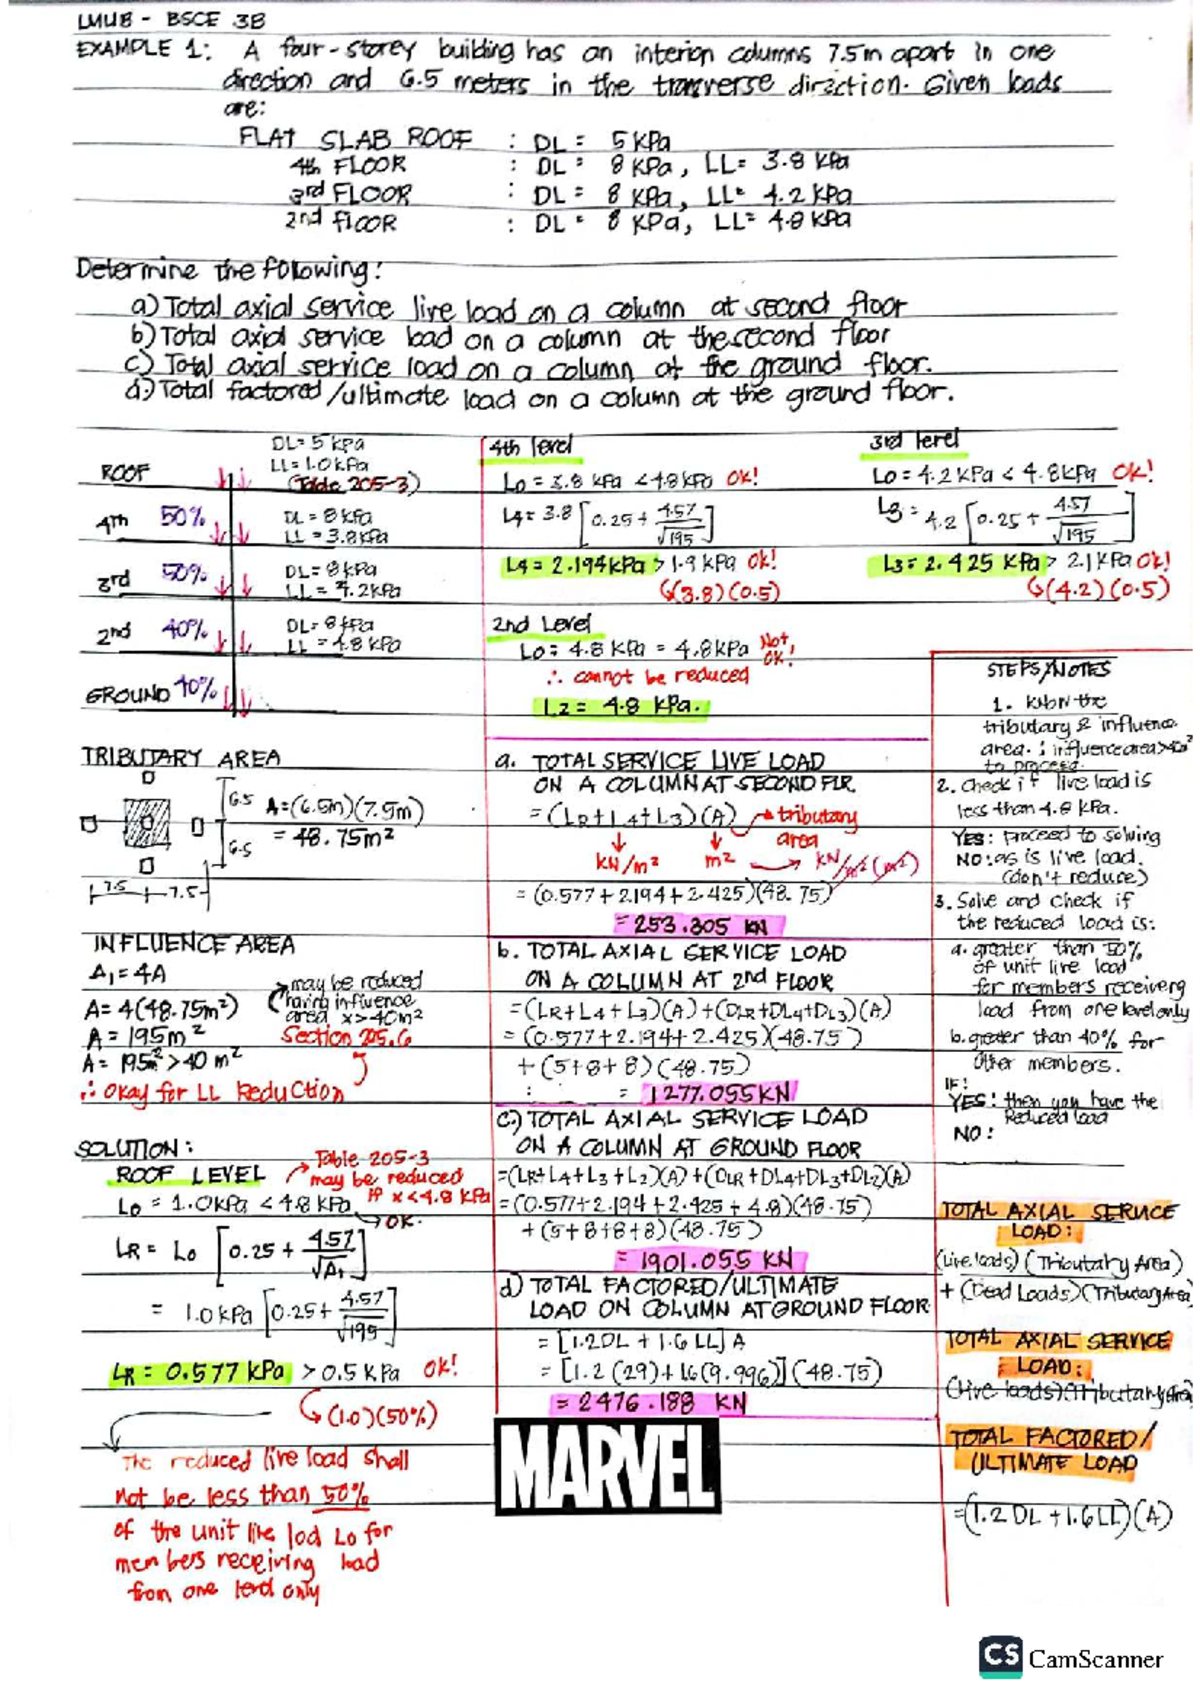 LMUB - BSCE 3B
EXAMPLE 1: A four-storey building has an interior columns 7.5m apart in one
direction and 6.5 meters in the transverse direction. Given loads
are:
FLAT SLAB ROOF : DL = 5 kPa
4th FLOOR : DL = 8 kPa, LL= 3.8 kPa
3rd FLOOR : DL = 8 kPa, LL= 4.2 kPa
2nd flOOR : DL = 8 KPa, LL= 4.8 kPa
Determine the following:
a) Total axial service live load on a column at second floor
b) Total axial service load on a column at the second floor
c) Total axial service load on a column at the ground floor.
d.) Total factored/ultimate load on a column at the ground floor.
ROOF
DL= 5 kPa
LL= 1.0 kPa
(Table 205-3)
4th 50%
DL = 8 kPa
LL = 3.8kPa
3rd 50%
DL= 8kPa
LL= 4.2kPa
2nd 40%
DL= 8 kPa
LL = 4.8 kPa
GROUND 40%
TRIBUTARY AREA
6.5
6.5
7.5
7.5
A=(6.5m)(7.5m)
= 48.75m²
INFLUENCE AREA
A₁ = 4A
A= 4(48.75m²)
A = 195m²
A= 195m² >40 m²
∴ Okay for LL Reduction
may be reduced
(having influence
area x>40m²
Section 205.6
SOLUTION:
ROOF LEVEL
Table 205-3
may be reduced
if x<4.8 kPa
Lo = 1.0kPa < 4.8 kPa
OK.
LR = Lo [0.25 + 4.57/√A₁]
= 1.0 kPa [0.25 + 4.57/√195]
LR = 0.577 kPa > 0.5 kPa OK!
(1.0)(50%)
The reduced live load shall
not be less than 50%
of the unit live lod Lo for
members receiving load
from one level only
4th level
Lo = 3.8 kPa < 4.8 kPa OK!
L4 = 3.8 [0.25 + 4.57/√195]
L4 = 2.194kPa > 1.9 kPa OK!
(3.8)(0.5)
3rd level
Lo = 4.2 kPa < 4.8kPa OK!
L3 = 4.2 [0.25 + 4.57/√195]
L3 = 2.425 kPa > 2.1 kPa OK!
(4.2)(0.5)
2nd Level
Lo = 4.8 kPa = 4.8kPa Not OK!
∴ cannot be reduced
L2 = 4.8 kPa.
a. TOTAL SERVICE LIVE LOAD
ON A COLUMN AT SECOND FLR.
= (LR + L4 + L3)(A) → tributary
area
kN/m² m² → kN/m² (m²)
= (0.577 + 2.194 + 2.425)(48.75)
= 253.305 kN
b. TOTAL AXIAL SERVICE LOAD
ON A COLUMN AT 2nd FLOOR
= (LR + L4 + L3)(A) + (DLR + DL4 + DL3)(A)
= (0.577 + 2.194 + 2.425)(48.75)
+ (5+8+8)(48.75)
= 1277.055 KN
c.) TOTAL AXIAL SERVICE LOAD
ON A COLUMN AT GROUND FLOOR
= (LR + L4 + L3 + L2)(A) + (DLR + DL4 + DL3 + DL2)(A)
= (0.577 + 2.194 + 2.425 + 4.8)(48.75)
+ (5+8+8+8)(48.75)
= 1901.055 kN
d) TOTAL FACTORED/ULTIMATE
LOAD ON COLUMN AT GROUND FLOOR
= [1.2DL + 1.6 LL] A
= [1.2 (29) + 1.6(9.996)] (48.75)
= 2476.188 KN
MARVEL
STEPS/NOTES
1. Know the
tributary & influence
area. : influence area >40m²
to proceed.
2. Check if live load is
less than 4.8 kPa.
YES: proceed to solving
NO: as is live load.
(don't reduce)
3. Solve and check if
the reduced load is:
a. greater than 50%
of unit live load
for members receiverg
load from one level only
b. greater than 40% for
other members.
IF:
YES: then you have the
Reduced load
NO:
TOTAL AXIAL SERVICE
LOAD:
(Live loads)(Tributary Area)
+ (Dead Loads)(Tributary Area)
TOTAL AXIAL SERVICE
LOAD:
(Live loads)(Tributary Area)
TOTAL FACTORED/
ULTIMATE LOAD
=(1.2 DL + 1.6 LL)(A)
CS CamScanner